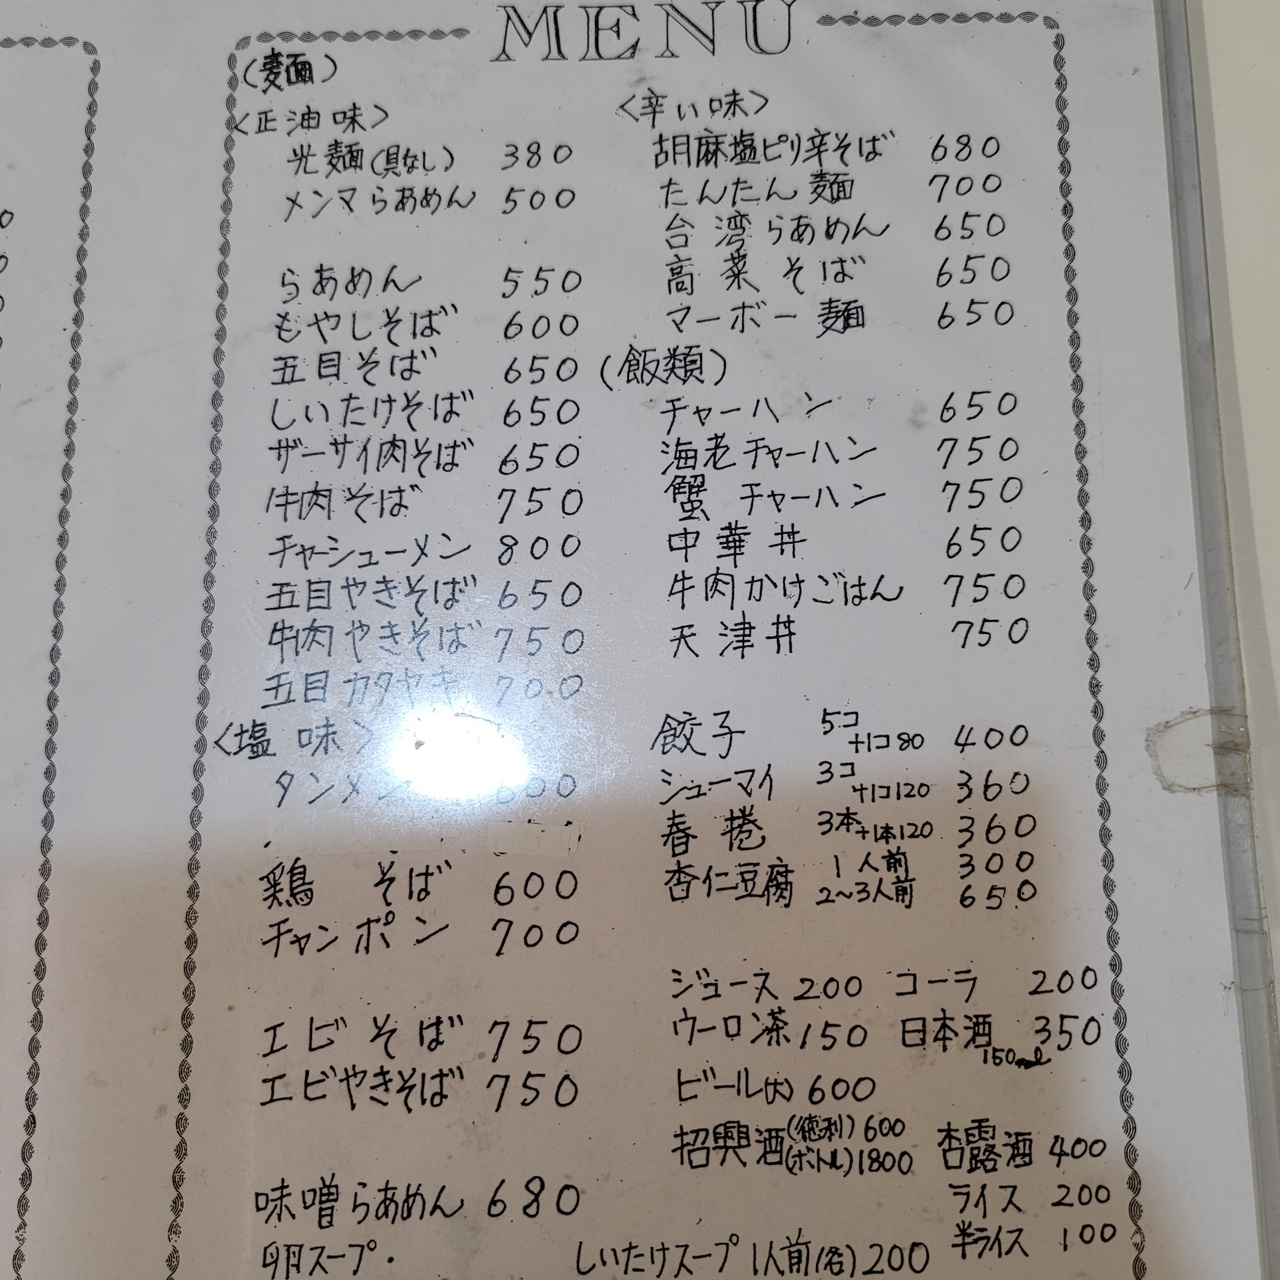 MENU
(麺)
<正油味>
光麺(具なし) 380
メンマらあめん 500
らあめん 550
もやしそば 600
五目そば 650
しいたけそば 650
ザーサイ肉そば 650
牛肉そば 750
チャーシューメン 800
五目やきそば 650
牛肉やきそば 750
五目カタヤキ 700
<塩味>
タンメン
鶏そば 600
チャンポン 700
エビそば 750
エビやきそば 750
味噌らあめん 680
<辛い味>
胡麻塩ピリ辛そば 680
たんたん麺 700
台湾らあめん 650
高菜そば 650
マーボー麺 650
(飯類)
チャーハン 650
海老チャーハン 750
蟹チャーハン 750
中華丼 650
牛肉かけごはん 750
天津丼 750
餃子 5コ +1コ80 400
シューマイ 3コ +1コ120 360
春捲 3本 +1本120 360
杏仁豆腐 1人前 300
2~3人前 650
ジュース 200 コーラ 200
ウーロン茶 150 日本酒 150ml 350
ビール(大) 600
招興酒(徳利) 600
(ボトル) 1800 杏露酒 400
ライス 200
半ライス 100
卵スープ・しいたけスープ 1人前(各) 200